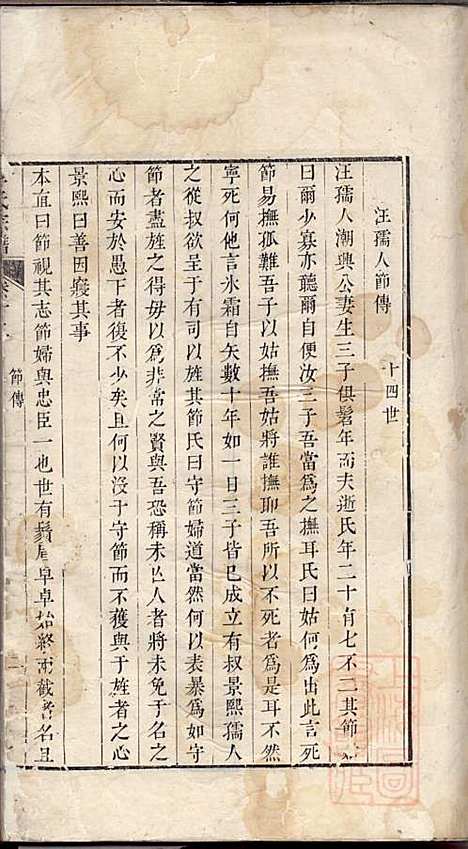 汪孺人節傳　十四世
汪孺人潮興公妻生三子俱髫年而夫逝氏年二十有七不二其節
曰爾少寡亦聽爾自便汝三子吾當為之撫耳氏曰姑何為出此言死
節易撫孤難吾子以姑撫吾姑將誰撫耶吾所以不死者為是耳不然
寧死何他言氷霜自矢數十年如一日三子皆已成立有叔景熙孺人
之從叔欲呈于有司以旌其節氏曰守節婦道當然何以表暴為如守
節者盡旌之得毋以為非常之賢與吾恐稱未亡人者將未免于名之
心而安於愚下者復不少矣且何以浸十守節而不獲與于旌者之心
景熙曰善因寢其事
本直曰節視其志節婦與忠臣一也世有鬚眉卓卓始終而截者名且
氏宗譜
節傳